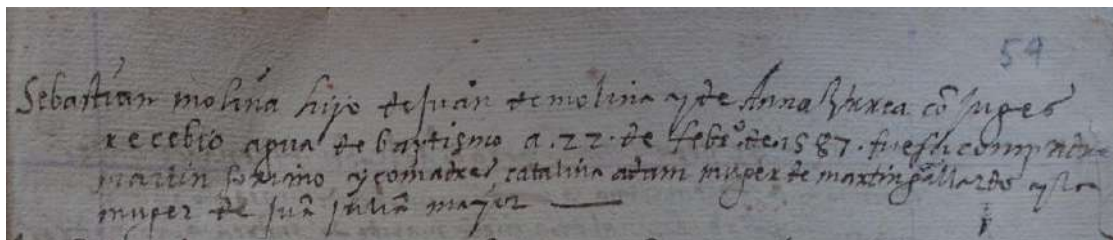 54
Sebastian molina hijo de Juan de molina y de Anna cōjuges
recebio agua de baptismo a .22. de febrº. de .1587. fue su compadre
martin y comadres catalina adam muger de martin gallardo y la
muger de juā juliā mayor